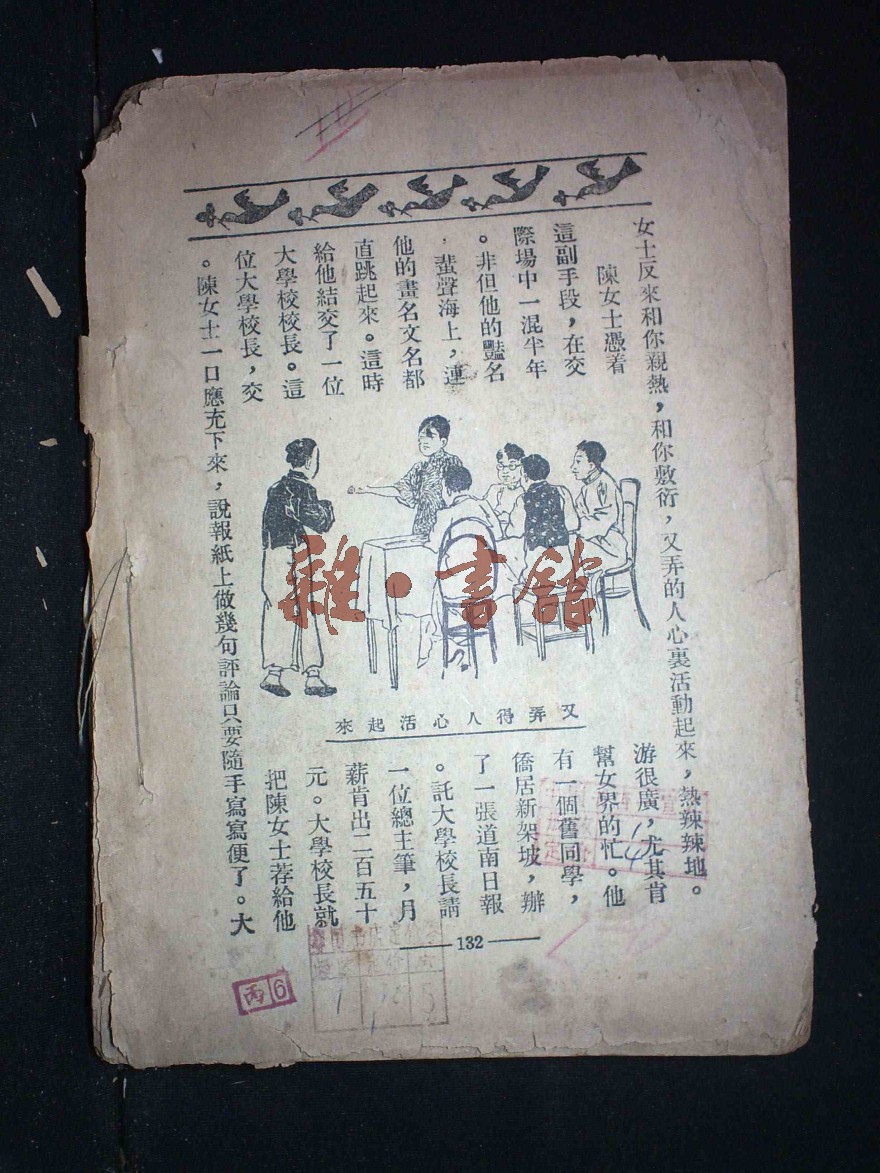 女士反來和你親熱，和你敷衍，又弄的人心裏活動起來，熱辣辣地。
陳女士憑着
這副手段，在交
際場中一混半年
。非但他的豔名
，蜚聲海上，連
他的畫名文名都
直跳起來。這時
給他結交了一位
大學校校長。這
位大學校長，交
游很廣，尤其肯
幫女界的忙。他
有一個舊同學，
僑居新架坡，辦
了一張道南日報
。託大學校長請
一位總主筆，月
薪肯出二百五十
元。大學校長就
把陳女士荐給他
。陳女士一口應充下來，說報紙上做幾句評論只要隨手寫寫便了。大
又弄得人心活起來
132
雜·書館
丙6